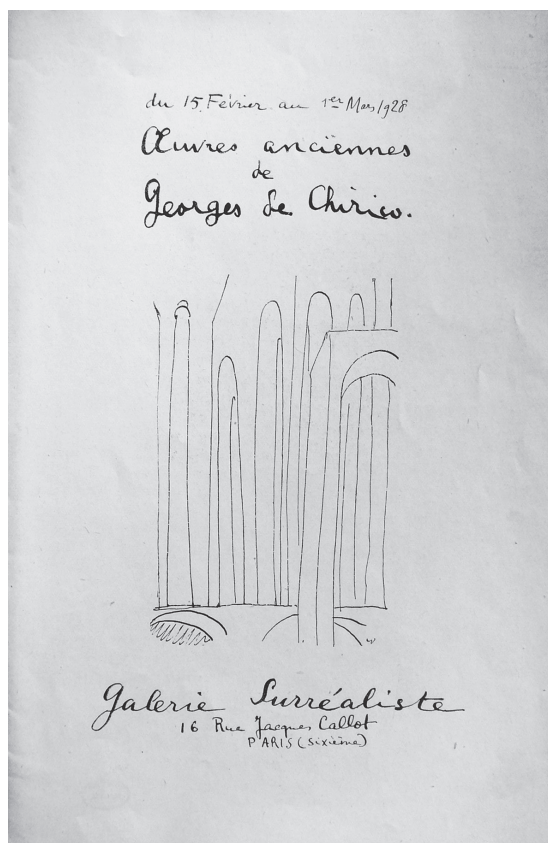 du 15 Février au 1er Mars 1928
Œuvres anciennes
de
Georges de Chirico.
Galerie Surréaliste
16 Rue Jacques Callot
PARIS (Sixième)